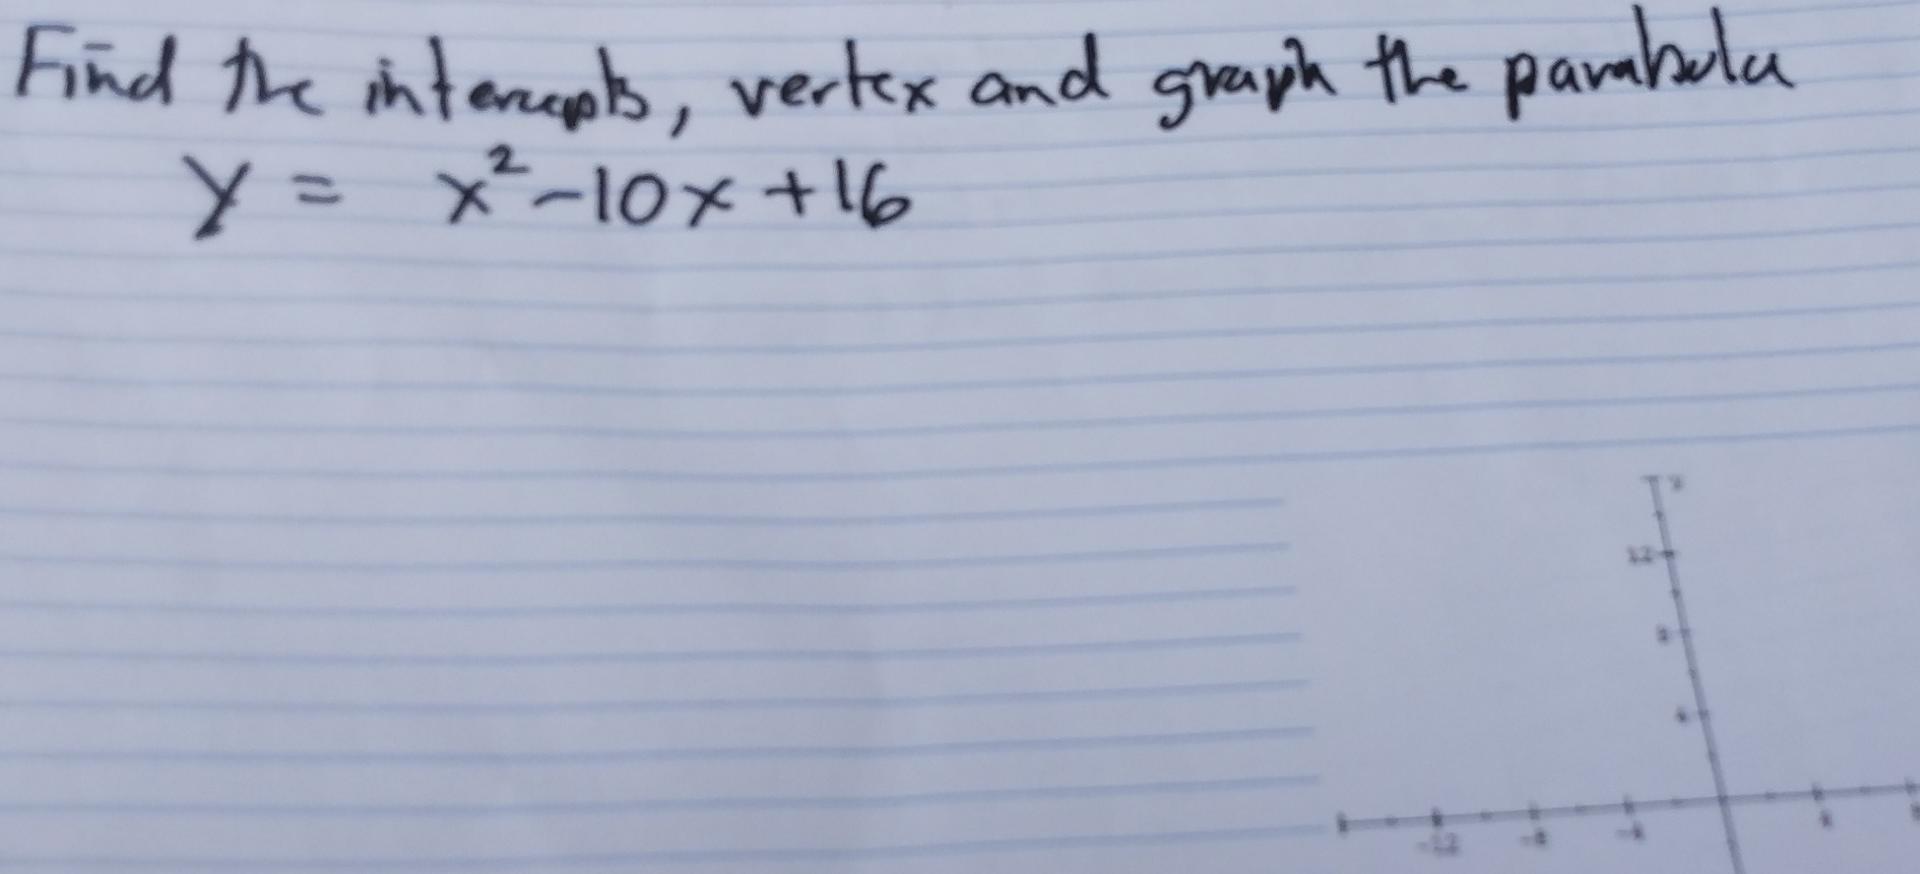 Find the intercepts, vertex and graph the parabola
y = x² - 10x + 16
y
12
8
4
-12 -8 -4 4 8